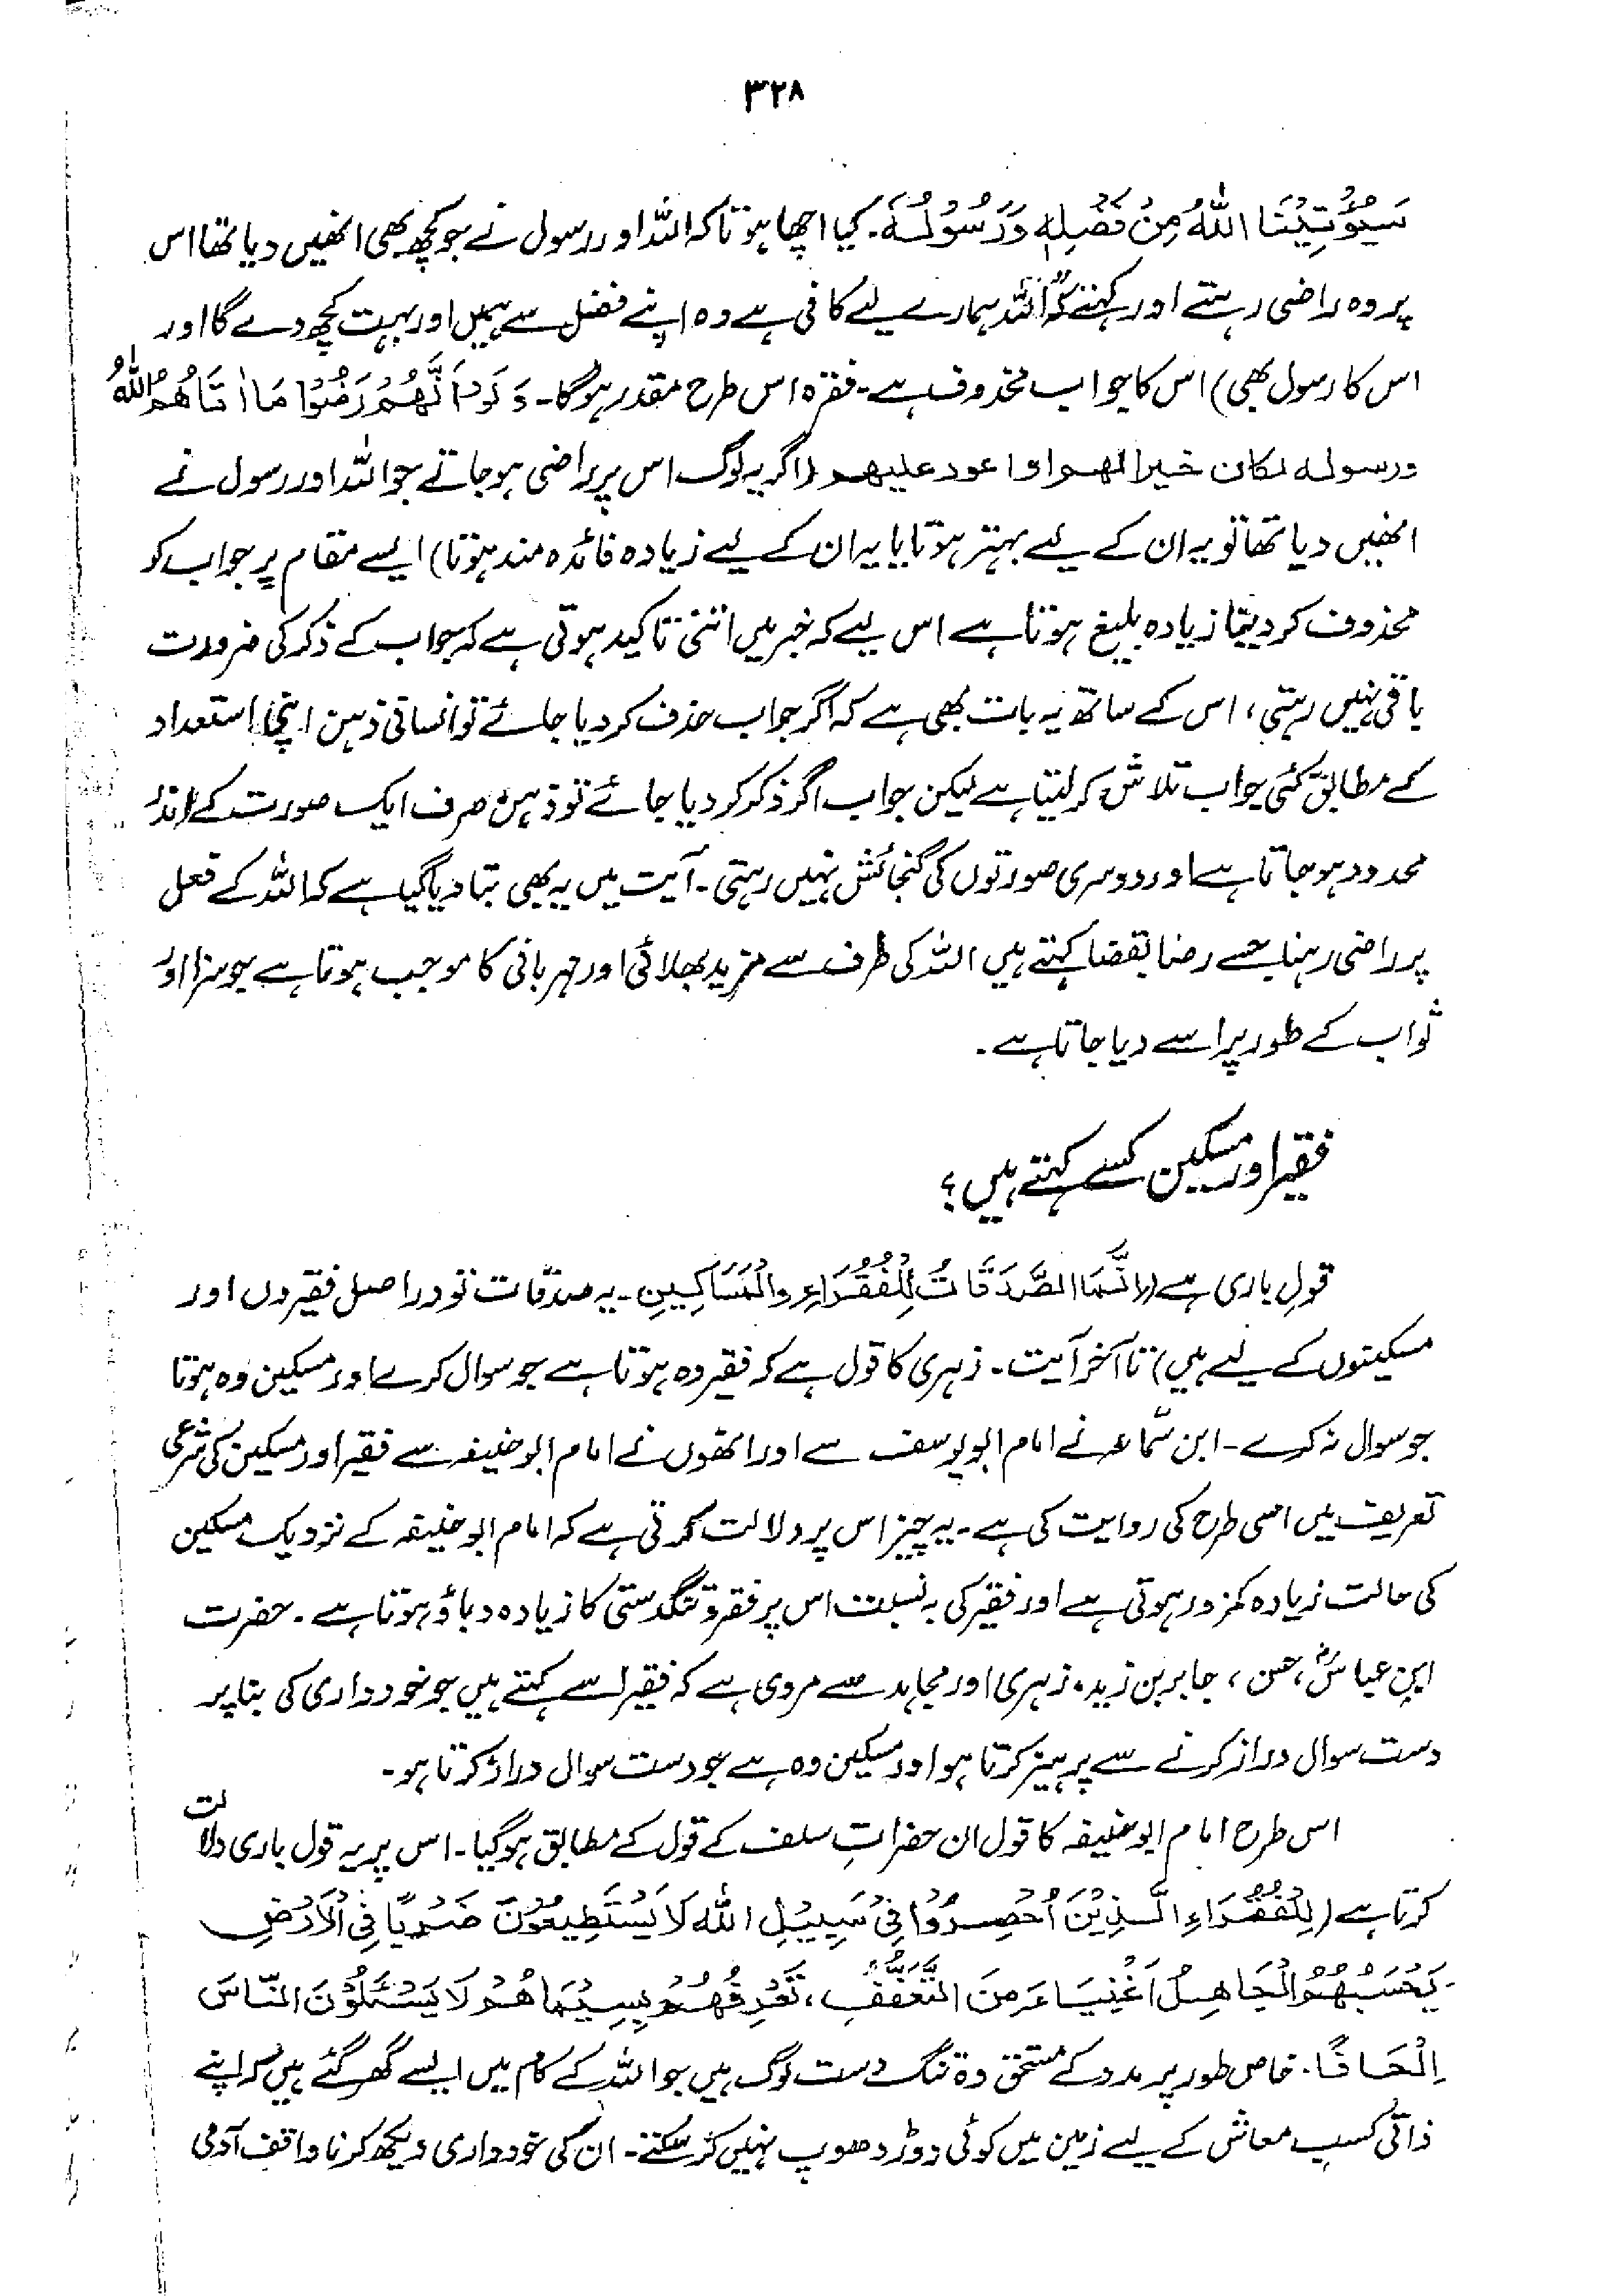 ۳۲۸
سَيُؤْتِيْنَا اللّٰهُ مِنْ فَضْلِهٖ وَرَسُوْلُهٗ۔ کیا اچھا ہوتا کہ اللہ اور رسول نے جو کچھ بھی انھیں دیا تھا اس
پر وہ راضی رہتے اور کہتے کہ اللہ ہمارے لیے کافی ہے وہ اپنے فضل سے ہمیں اور بہت کچھ دے گا اور
اس کا رسول بھی) اس کا جواب محذوف ہے۔ فقرہ اس طرح مقدر ہوگا۔ وَلَوْ اَنَّهُمْ رَضُوْا مَا اٰتَاهُمُ اللّٰهُ
ورسوله لكان خيرا لهم او اعود عليهم (اگر یہ لوگ اس پر راضی ہو جاتے جو اللہ اور رسول نے
انھیں دیا تھا تو یہ ان کے لیے بہتر ہوتا یا یہ ان کے لیے زیادہ فائدہ مند ہوتا) ایسے مقام پر جواب کو
محذوف کر دینا زیادہ بلیغ ہوتا ہے اس لیے کہ خبر میں اتنی تاکید ہوتی ہے کہ جواب کے ذکر کی ضرورت
باقی نہیں رہتی، اس کے ساتھ یہ بات بھی ہے کہ اگر جواب حذف کر دیا جائے تو انسانی ذہن اپنی استعداد
کے مطابق کئی جواب تلاش کر لیتا ہے لیکن جواب اگر ذکر کر دیا جائے تو ذہن صرف ایک صورت کے اندر
محدود ہو جاتا ہے اور دوسری صورتوں کی گنجائش نہیں رہتی۔ آیت میں یہ بھی بتا دیا گیا ہے کہ اللہ کے فعل
پر راضی رہنا جسے رضا بقضا کہتے ہیں اللہ کی طرف سے مزید بھلائی اور مہربانی کا موجب ہوتا ہے جو سزا اور
ثواب کے طور پر اسے دیا جاتا ہے۔
فقیر اور مسکین کسے کہتے ہیں؟
قولِ باری ہے (اِنَّمَا الصَّدَقَاتُ لِلْفُقَرَاءِ وَالْمَسَاكِينِ۔ یہ صدقات تو دراصل فقیروں اور
مسکینوں کے لیے ہیں) تا آخر آیت۔ زہری کا قول ہے کہ فقیر وہ ہوتا ہے جو سوال کرے اور مسکین وہ ہوتا
جو سوال نہ کرے۔ ابن سماعہ نے امام ابویوسف سے اور انھوں نے امام ابوحنیفہ سے فقیر اور مسکین کی شرعی
تعریف میں اسی طرح کی روایت کی ہے۔ یہ چیز اس پر دلالت کرتی ہے کہ امام ابوحنیفہ کے نزدیک مسکین
کی حالت زیادہ کمزور ہوتی ہے اور فقیر کی بہ نسبت اس پر فقر و تنگدستی کا زیادہ دباؤ ہوتا ہے۔ حضرت
ابن عباسؓ، حسن، جابر بن زید، زہری اور مجاہد سے مروی ہے کہ فقیر اسے کہتے ہیں جو خودداری کی بنا پر
دست سوال دراز کرنے سے پرہیز کرتا ہو اور مسکین وہ ہے جو دست سوال دراز کرتا ہو۔
اس طرح امام ابوحنیفہ کا قول ان حضراتِ سلف کے قول کے مطابق ہوگیا۔ اس پر یہ قول باری دلالت
کرتا ہے (لِلْفُقَرَاءِ الَّذِيْنَ اُحْصِرُوْا فِيْ سَبِيْلِ اللّٰهِ لَا يَسْتَطِيعُوْنَ ضَرْبًا فِي الْاَرْضِ
يَحْسَبُهُمُ الْجَاهِلُ اَغْنِيَاءَ مِنَ التَّعَفُّفِ، تَعْرِفُهُمْ بِسِيْمَاهُمْ لَا يَسْئَلُوْنَ النَّاسَ
اِلْحَافًا۔ خاص طور پر مدد کے مستحق وہ تنگ دست لوگ ہیں جو اللہ کے کام میں ایسے گھر گئے ہیں کہ اپنے
ذاتی کسبِ معاش کے لیے زمین میں کوئی دوڑ دھوپ نہیں کر سکتے۔ ان کی خودداری دیکھ کر ناواقف آدمی